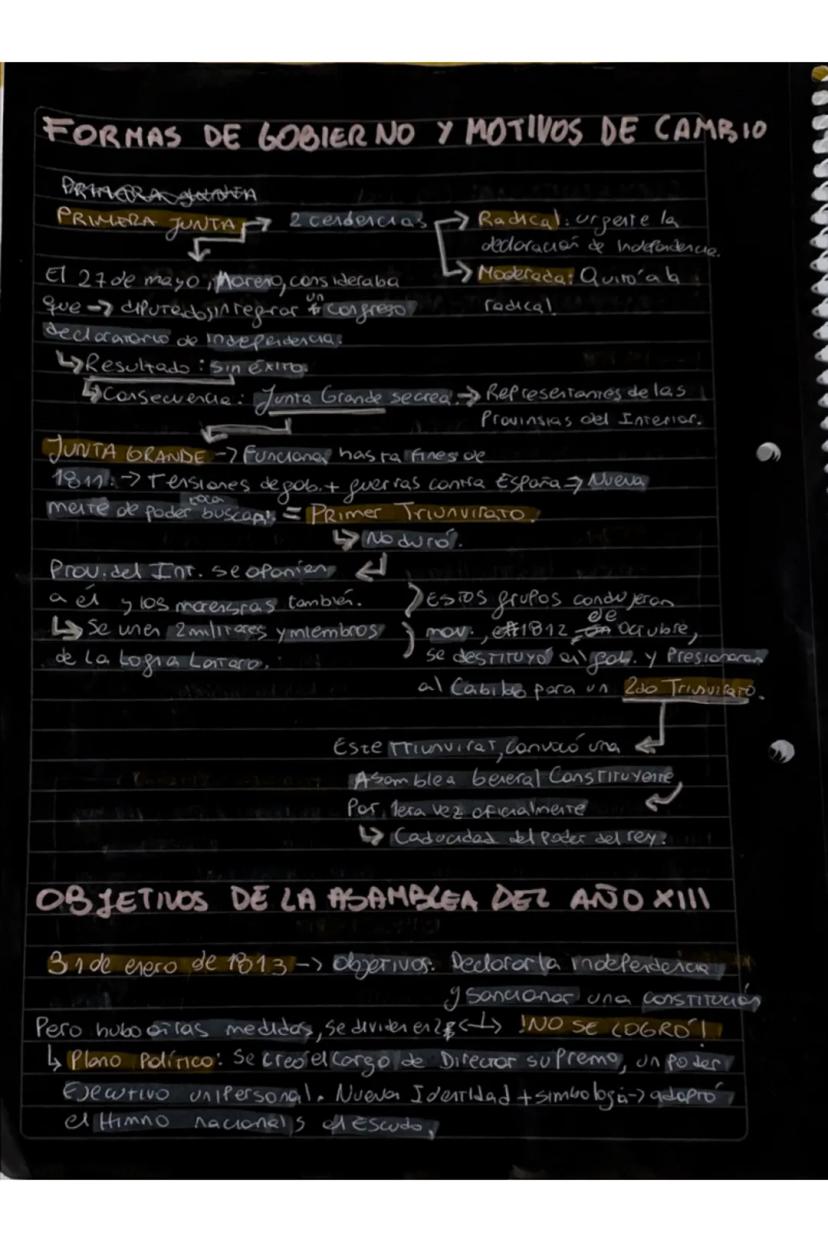 FORMAS DE GOBIERNO Y MOTIVOS DE CAMBIO
PRIMERA JUNTA → 2 tendencias → Radical: urgente la
declaración de Independencia.
↳ Moderada: Quitó a la
radical
El 27 de mayo, Moreno, consideraba
que → diputados integrar un congreso
declaratorio de independencia.
↳ Resultado: sin éxito.
↳ Consecuencia: Junta Grande se crea. → Representantes de las
Provinsias del Interior.
JUNTA GRANDE → Funciona hasta fines de
1811. → Tensiones de gob. + guerras contra España → Nueva
mente de poder buscan = PRIMER TRIUNVIRATO.
↳ No duró.
Prov. del Int. se oponían
a él y los morenistas también.
↳ Se unen 2 militares y miembros
de la Logia Lautaro.
Estos grupos condujeron
mov., 1812 de Octubre,
se destituyó al gob. y Presionaron
al Cabildo para un 2do Triunvirato.
Este triunvirat, convocó una
Asamblea General Constituyente
Por 1era vez oficialmente
↳ Caducidad del poder del rey.
OBJETIVOS DE LA ASAMBLEA DEL AÑO XIII
31 de enero de 1813 → objetivos: Declarar la independencia
y sancionar una constitución
Pero hubo otras medidas, se dividen en 2 ↔ ¡NO SE LOGRÓ!
↳ Plano Político: Se creó el cargo de Director supremo, un poder
Ejecutivo unipersonal. Nueva Identidad + simbología → adoptó
el Himno nacional y el escudo.